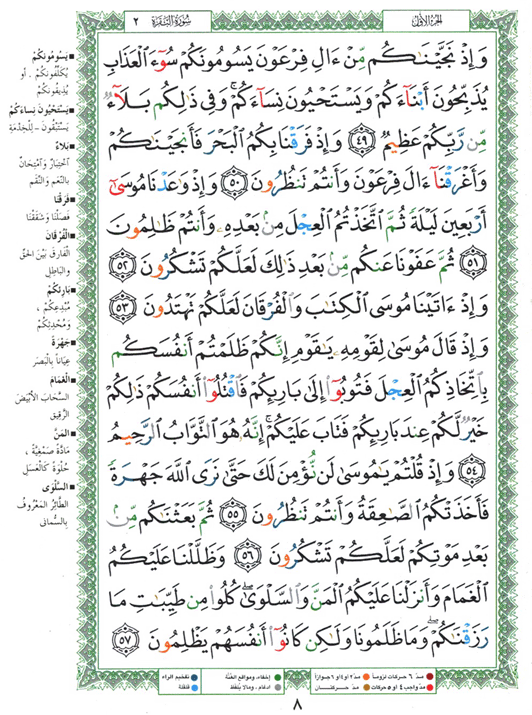 الجزء الأول
سورة البقرة ٢
وَإِذْ نَجَّيْنَٰكُم مِّنْ ءَالِ فِرْعَوْنَ يَسُومُونَكُمْ سُوٓءَ ٱلْعَذَابِ
يُذَبِّحُونَ أَبْنَآءَكُمْ وَيَسْتَحْيُونَ نِسَآءَكُمْ ۚ وَفِى ذَٰلِكُم بَلَآءٌ
مِّن رَّبِّكُمْ عَظِيمٌ ٤٩ وَإِذْ فَرَقْنَا بِكُمُ ٱلْبَحْرَ فَأَنجَيْنَٰكُمْ
وَأَغْرَقْنَآ ءَالَ فِرْعَوْنَ وَأَنتُمْ تَنظُرُونَ ٥٠ وَإِذْ وَٰعَدْنَا مُوسَىٰٓ
أَرْبَعِينَ لَيْلَةً ثُمَّ ٱتَّخَذْتُمُ ٱلْعِجْلَ مِنۢ بَعْدِهِۦ وَأَنتُمْ ظَٰلِمُونَ
٥١ ثُمَّ عَفَوْنَا عَنكُم مِّنۢ بَعْدِ ذَٰلِكَ لَعَلَّكُمْ تَشْكُرُونَ ٥٢
وَإِذْ ءَاتَيْنَا مُوسَى ٱلْكِتَٰبَ وَٱلْفُرْقَانَ لَعَلَّكُمْ تَهْتَدُونَ ٥٣
وَإِذْ قَالَ مُوسَىٰ لِقَوْمِهِۦ يَٰقَوْمِ إِنَّكُمْ ظَلَمْتُمْ أَنفُسَكُم
بِٱتِّخَاذِكُمُ ٱلْعِجْلَ فَتُوبُوٓا۟ إِلَىٰ بَارِئِكُمْ فَٱقْتُلُوٓا۟ أَنفُسَكُمْ ذَٰلِكُمْ
خَيْرٌ لَّكُمْ عِندَ بَارِئِكُمْ فَتَابَ عَلَيْكُمْ ۚ إِنَّهُۥ هُوَ ٱلتَّوَّابُ ٱلرَّحِيمُ
٥٤ وَإِذْ قُلْتُمْ يَٰمُوسَىٰ لَن نُّؤْمِنَ لَكَ حَتَّىٰ نَرَى ٱللَّهَ جَهْرَةً
فَأَخَذَتْكُمُ ٱلصَّٰعِقَةُ وَأَنتُمْ تَنظُرُونَ ٥٥ ثُمَّ بَعَثْنَٰكُم مِّنۢ
بَعْدِ مَوْتِكُمْ لَعَلَّكُمْ تَشْكُرُونَ ٥٦ وَظَلَّلْنَا عَلَيْكُمُ
ٱلْغَمَامَ وَأَنزَلْنَا عَلَيْكُمُ ٱلْمَنَّ وَٱلسَّلْوَىٰ ۖ كُلُوا۟ مِن طَيِّبَٰتِ مَا
رَزَقْنَٰكُمْ ۖ وَمَا ظَلَمُونَا وَلَٰكِن كَانُوٓا۟ أَنفُسَهُمْ يَظْلِمُونَ ٥٧
يَسُومُونَكُمْ
يُكَلِّفُونَكُمْ . أو
يُذِيقُونَكُمْ
يَسْتَحْيُونَ نِسَاءَكُمْ
يَسْتَبْقُونَ - لِلْخِدْمَةِ
بَلَاءٌ
اخْتِبَارٌ وَامْتِحَانٌ
بِالنِّعَمِ وَالنِّقَمِ
فَرَقْنَا
فَصَلْنَا وَشَقَقْنَا
الْفُرْقَانَ
الْفَارِقَ بَيْنَ الْحَقِّ
وَالْبَاطِلِ
بَارِئِكُمْ
مُبْدِعِكُمْ ،
وَمُحْدِثِكُمْ
جَهْرَةً
عِيَاناً بِالْبَصَرِ
الْغَمَامَ
السَّحَابَ الأَبْيَضَ
الرَّقِيقَ
الْمَنَّ
مَادَّةٌ صَمْغِيَّةٌ ،
حُلْوَةٌ كَالْعَسَلِ
السَّلْوَى
الطَّائِرَ الْمَعْرُوفَ
بِالسُّمَانَى
مدّ ٦ حركات لزوماً مدّ ٢ او ٤ او ٦ جوازاً إخفاء، ومواقع الغنّة تفخيم الراء
مدّ واجب ٤ او ٥ حركات مدّ حركتان ادغام ، وما لا يُلفَظ قلقلة
٨